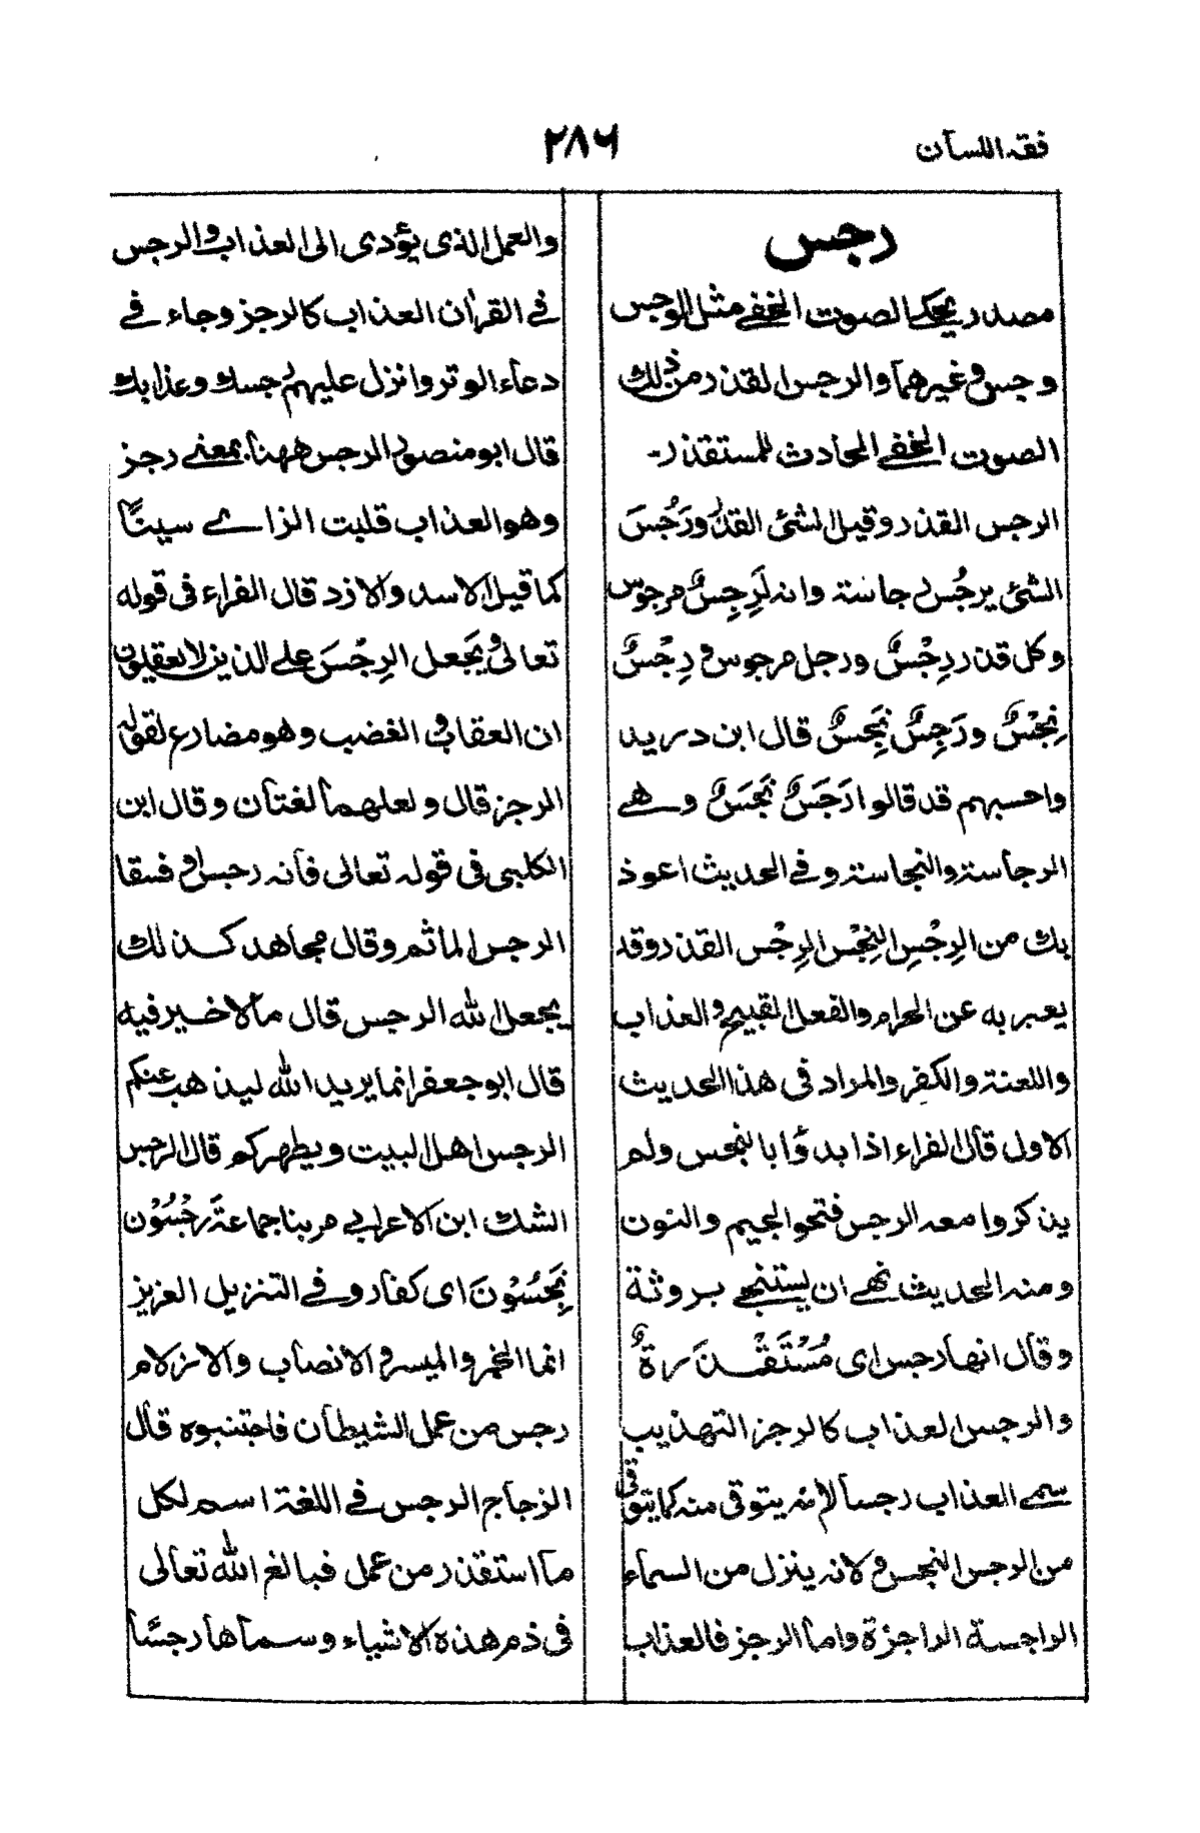 فقه اللسان
۲۸۶
رجس
مصدر يحكي الصوت الخفي مثل الوجس
وجس وغيرهما والرجس القذر من ذلك
الصوت الخفي الحادث للمستقذر-
الرجس القذر وقيل الشئ القذر ورَجُسَ
الشئ يرجُس رجاسة وانه لَرِجِسٌ مرجوس
وكل قذر رِجْسٌ ورجل مرجوس و رِجْسٌ
نِجْسٌ ورَجِسٌ نَجِسٌ قال ابن دريد
واحسبهم قد قالوا رَجَسٌ نَجَسٌ وهي
الرجاسة والنجاسة وفي الحديث اعوذ
بك من الرِجْسِ النِجْس الرِجْس القذر وقد
يعبر به عن الحرام والفعل القبيح والعذاب
واللعنة والكفر والمراد في هذا الحديث
الاول قال الفراء اذا بدؤا بالنجس ولم
يذكروا معه الرجس فتحوا الجيم والنون
ومنه الحديث نهي ان يستنجي بروثة
وقال انها رجس اى مُسْتَقْذَرةٌ
والرجس العذاب كالرجز التهذيب
سمي العذاب رجسا لانه يتوقى منه كما يتوقى
من الرجس النجس و لانه ينزل من السماء
الراجسة الراجزة واما الرجز فالعذاب
والعمل الذى يؤدى الى العذاب والرجس
في القرأن العذاب كالرجز وجاء في
دعاء الوتر وانزل عليهم رجسك وعذابك
قال ابو منصور الرجس ههنا بمعنى رجز
وهو العذاب قلبت الزاى سينًا
كما قيل الاسد والازد قال الفراء فى قوله
تعالى ويَجعل الرِجْسَ على الذين لايعقلون
ان العقاب و الغضب وهو مضارع لقوله
الرجز قال ولعلهما لغتان وقال ابن
الكلبى فى قوله تعالى فانه رجس او فسقا
الرجس الماثم وقال مجاهد كذلك
يجعل الله الرجس قال ما لا خير فيه
قال ابو جعفر انما يريد الله ليذهب عنكم
الرجس اهل البيت ويطهركم قال الرجس
الشك ابن الاعرابي مر بنا جماعةَ رَجْسُوْن
نَجَسُوْنَ اى كفار و في التنزيل العزيز
انما الخمر والميسر و الانصاب والازلام
رجس من عمل الشيطان فاجتنبوه قال
الزجاج الرجس في اللغة اسم لكل
ما استقذر من عمل فبالغ الله تعالى
فى ذم هذه الاشياء وسماها رجسًا